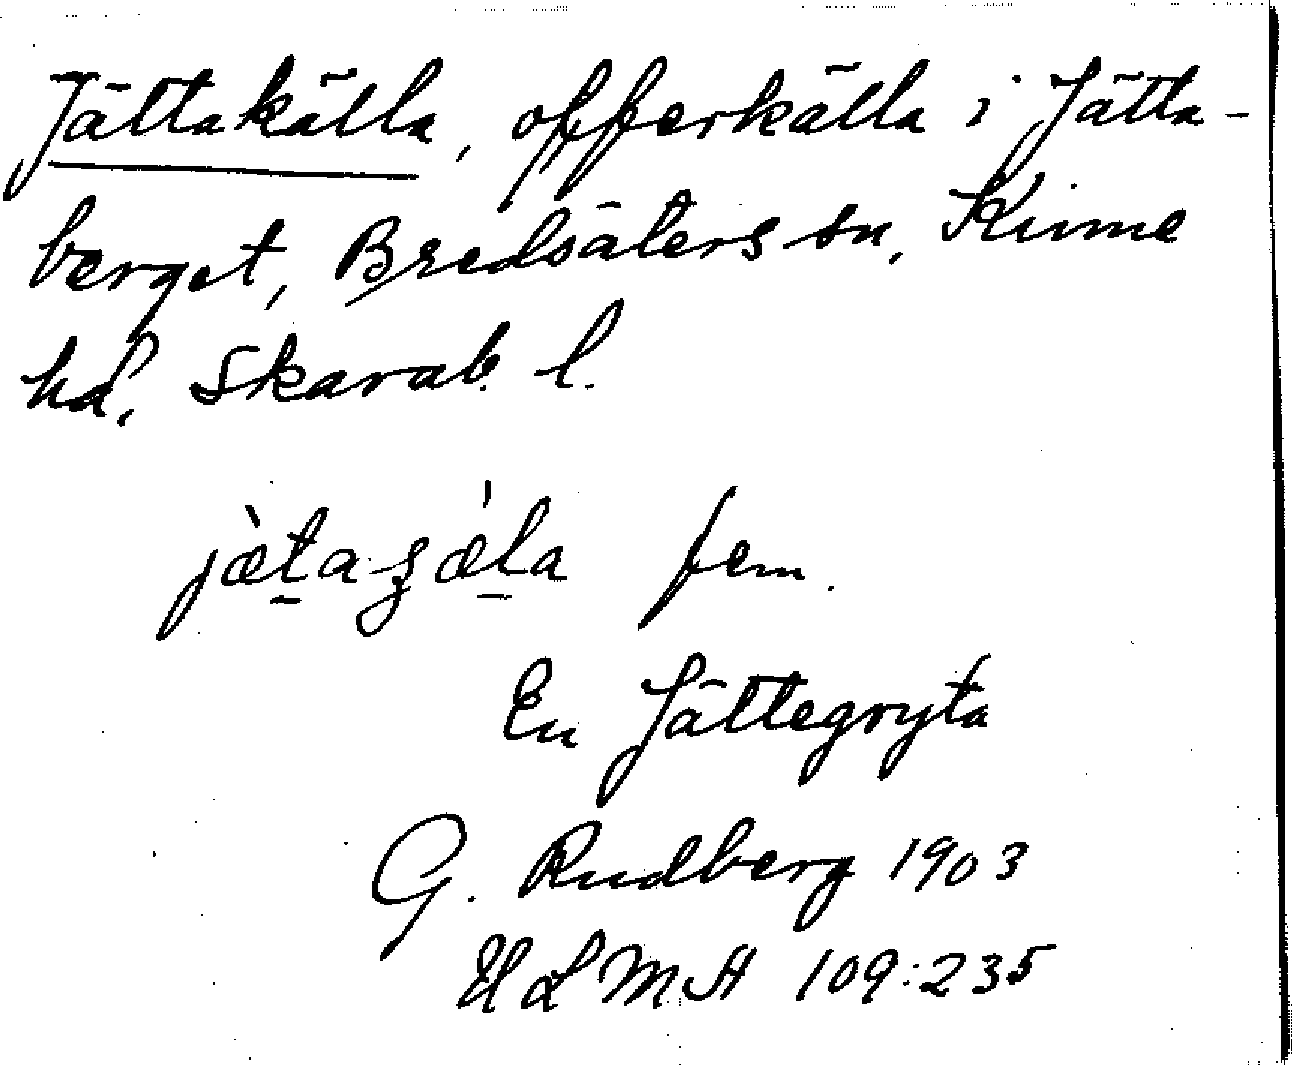 Jättakälla, offerkälla i Jätta-
berget, Bredsäters sn, Kinne
hd, Skarab. l.
fem.
En Jättegryta
G. Rudberg 1903
ULMA 109:235